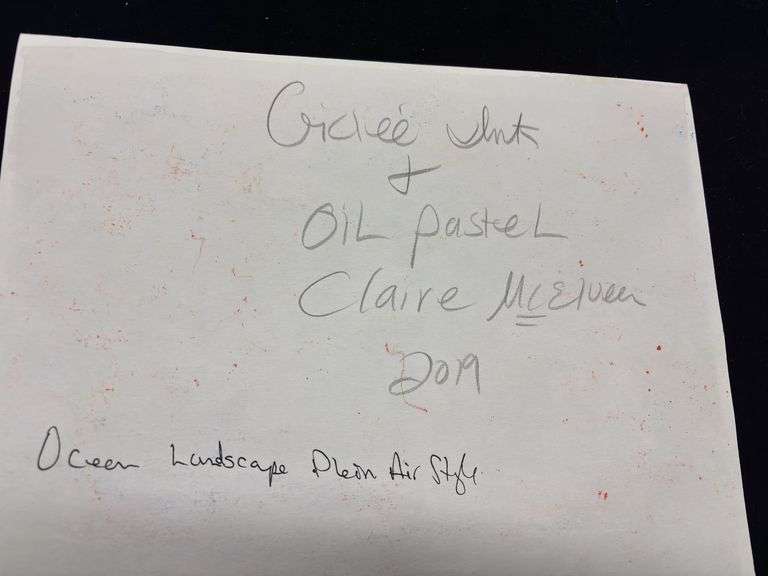 Giclée Ink
+
OIL pastel
Claire McElveen
2019
Ocean Landscape Plein Air Style